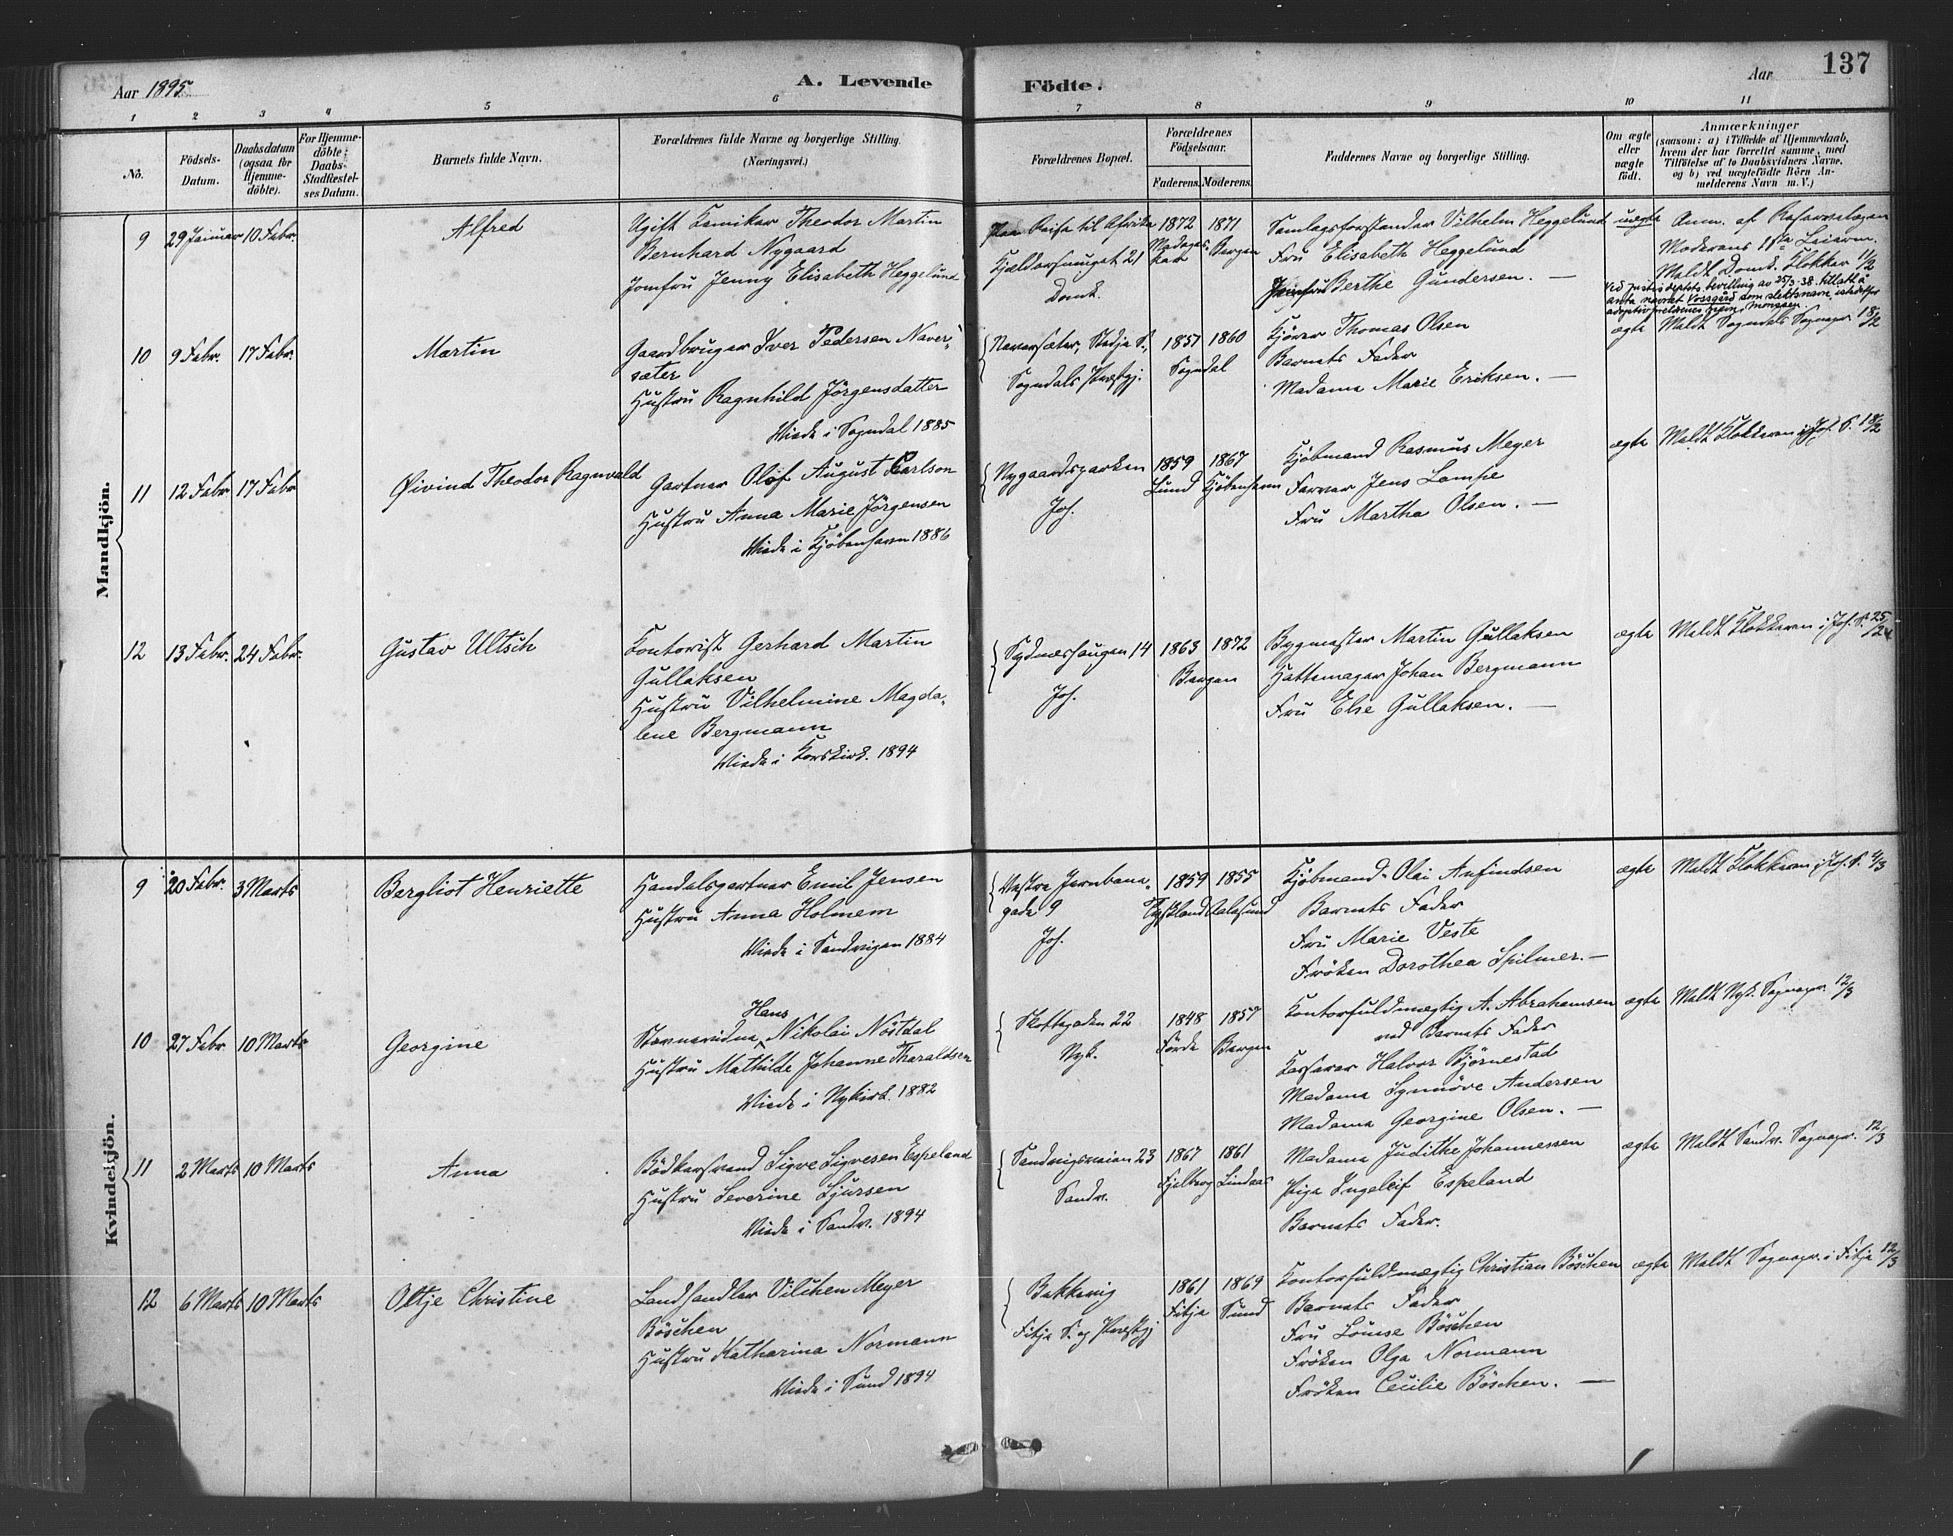 Aar 1895.
A. Levende
Födte.
Aar
137
1 2 3 4 5 6 7 8 9 10 11
No.
Födsels-
Datum.
Daabsdatum
(ogsaa for
Hjemme-
döbte).
For Hjemme-
döbte:
Daabs-
Stadfæstel-
ses Datum.
Barnets fulde Navn.
Forældrenes fulde Navne og borgerlige Stilling.
(Næringsvei.)
Forældrenes Bopæl.
Forældrenes
Födselsaar.
Faderens. Moderens.
Faddernes Navne og borgerlige Stilling.
Om ægte
eller
uægte
födt.
Anmærkninger
(saasom: a) i Tilfælde af Hjemmedaab,
hvem der har forrettet samme, med
Tilföielse af to Daabsvidners Navne,
og b) ved uægtefödte Börn An-
melderens Navn m. V.)
Mandkjön.
9
29 Januar
10 Febr.
Alfred
Ugift Theodor Martin
Bernhard Nygaard
Jomfru Jenny Elisabeth Heggelund
Paa Reise til Afrika
Kjeldersmuget 21
Domk.
1872 1871
Madagas-
kar
Bergen
Samlagsforstander Vilhelm Heggelund
Fru Elisabeth Heggelund
Jomfru Berthe Gundersen. —
uægte
Moderens 1ste Leierm.
Meldt Domk. Klokker 11/2
Ved Justisdeptets bevilling av 25/3-38 tillatt å
anta navnet Vossgård som slektsnavn istedetfor
10
9 Febr.
17 Febr.
Martin
Gaardbruger Iver Pedersen Naver-
sæter
Hustru Ragnhild Jörgensdatter
Viede i Sogndal 1885
Naversæter, Stedje S.,
Sogndals Præstgj.
1857 1860
Sogndal
Kjörer Thomas Olsen
Barnets Fader
Madame Marie Eriksen. —
ægte
Meldt Sogndals Sognepr. 18/2
11
12 Febr
17 Febr
Øivind Theodor Ragnvald
Gartner Olof August Carlson
Hustru Anna Marie Jörgensen
Viede i Kjöbenhavn 1886
Nygaardsparken
Joh.
1859 1867
Lund Kjöbenhavn
Kjöbmand Rasmus Meyer
Farver Jens Lampe
Fru Martha Olsen. —
ægte
Meldt Klokkeren i Joh. S. 18/2
12
13 Febr.
24 Febr.
Gustav Ultsch
Kontorist Gerhard Martin
Gullaksen
Hustru Vilhelmine Magda-
lene Bergmann
Viede i Korskirk. 1894
Sydneshaugen 14
Joh.
1863 1872
Bergen
Bygmester Martin Gullaksen
Hattemager Johan Bergmann
Fru Else Gullaksen. —
ægte
Meldt Klokkeren i Joh. S. 25/2
Kvindekjön.
9
20 Febr.
3 Marts
Bergliot Henriette
Handelsgartner Emil Jensen
Hustru Anna Holmem
Viede i Sandvigen 1884
Vestre Jernbane-
gade 9
Joh.
1859 1855
Tyskland Aalesund
Kjöbmand Olai Anfindsen
Barnets Fader
Fru Marie Veste
Fröken Dorothea Spilmer. —
ægte
Meldt Klokkeren i Joh. S. 4/3
10
27 Febr
10 Marts
Georgine
Hans
Stævnevidne Nikolai Nöstdal
Hustru Mathilde Johanne Tharaldsen
Viede i Nykirk. 1882
Skottegaden 22
Nyk.
1848 1857
Förde Bergen
Kontorfuldmægtig A. Abrahamsen
ved Barnets Fader
Halvor Björnestad
Madame Synnöve Andersen
Madame Georgine Olsen. —
ægte
Meldt Nyk. Sognepr. 12/3
11
2 Marts
10 Marts
Anna
Bödkersvend Sigve Sigvesen Espeland
Hustru Severine Sjursen
Viede i Sandv. 1894
Sandvigsveien 23
Sandv.
1867 1861
Fjelberg Lindaas
Madame Judithe Johannessen
Pige Ingeleif Espeland
Barnets Fader.
ægte
Meldt Sandv. Sognepr. 12/3
12
6 Marts
10 Marts
Oltje Christine
Landhandler Vilchen Meyer
Böschen
Hustru Katharina Normann
Viede i Sund 1894
Bakkevig
Fitje S. og Præstgj
1861 1869
Fitje Sund
Kontorfuldmægtig Christian Böschen
Barnets Fader
Fru Louise Böschen
Fröken Olga Normann
Fröken Cecilie Böschen. —
ægte
Meldt Sognepr. i Fitje 12/3